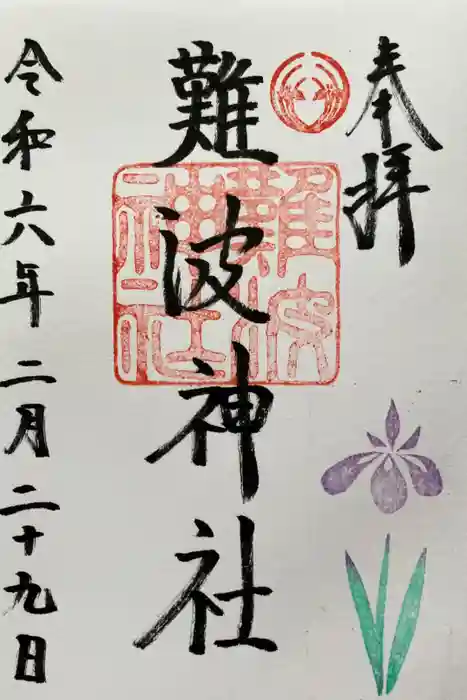 奉拝
難波神社
難波神社
令和六年二月二十九日